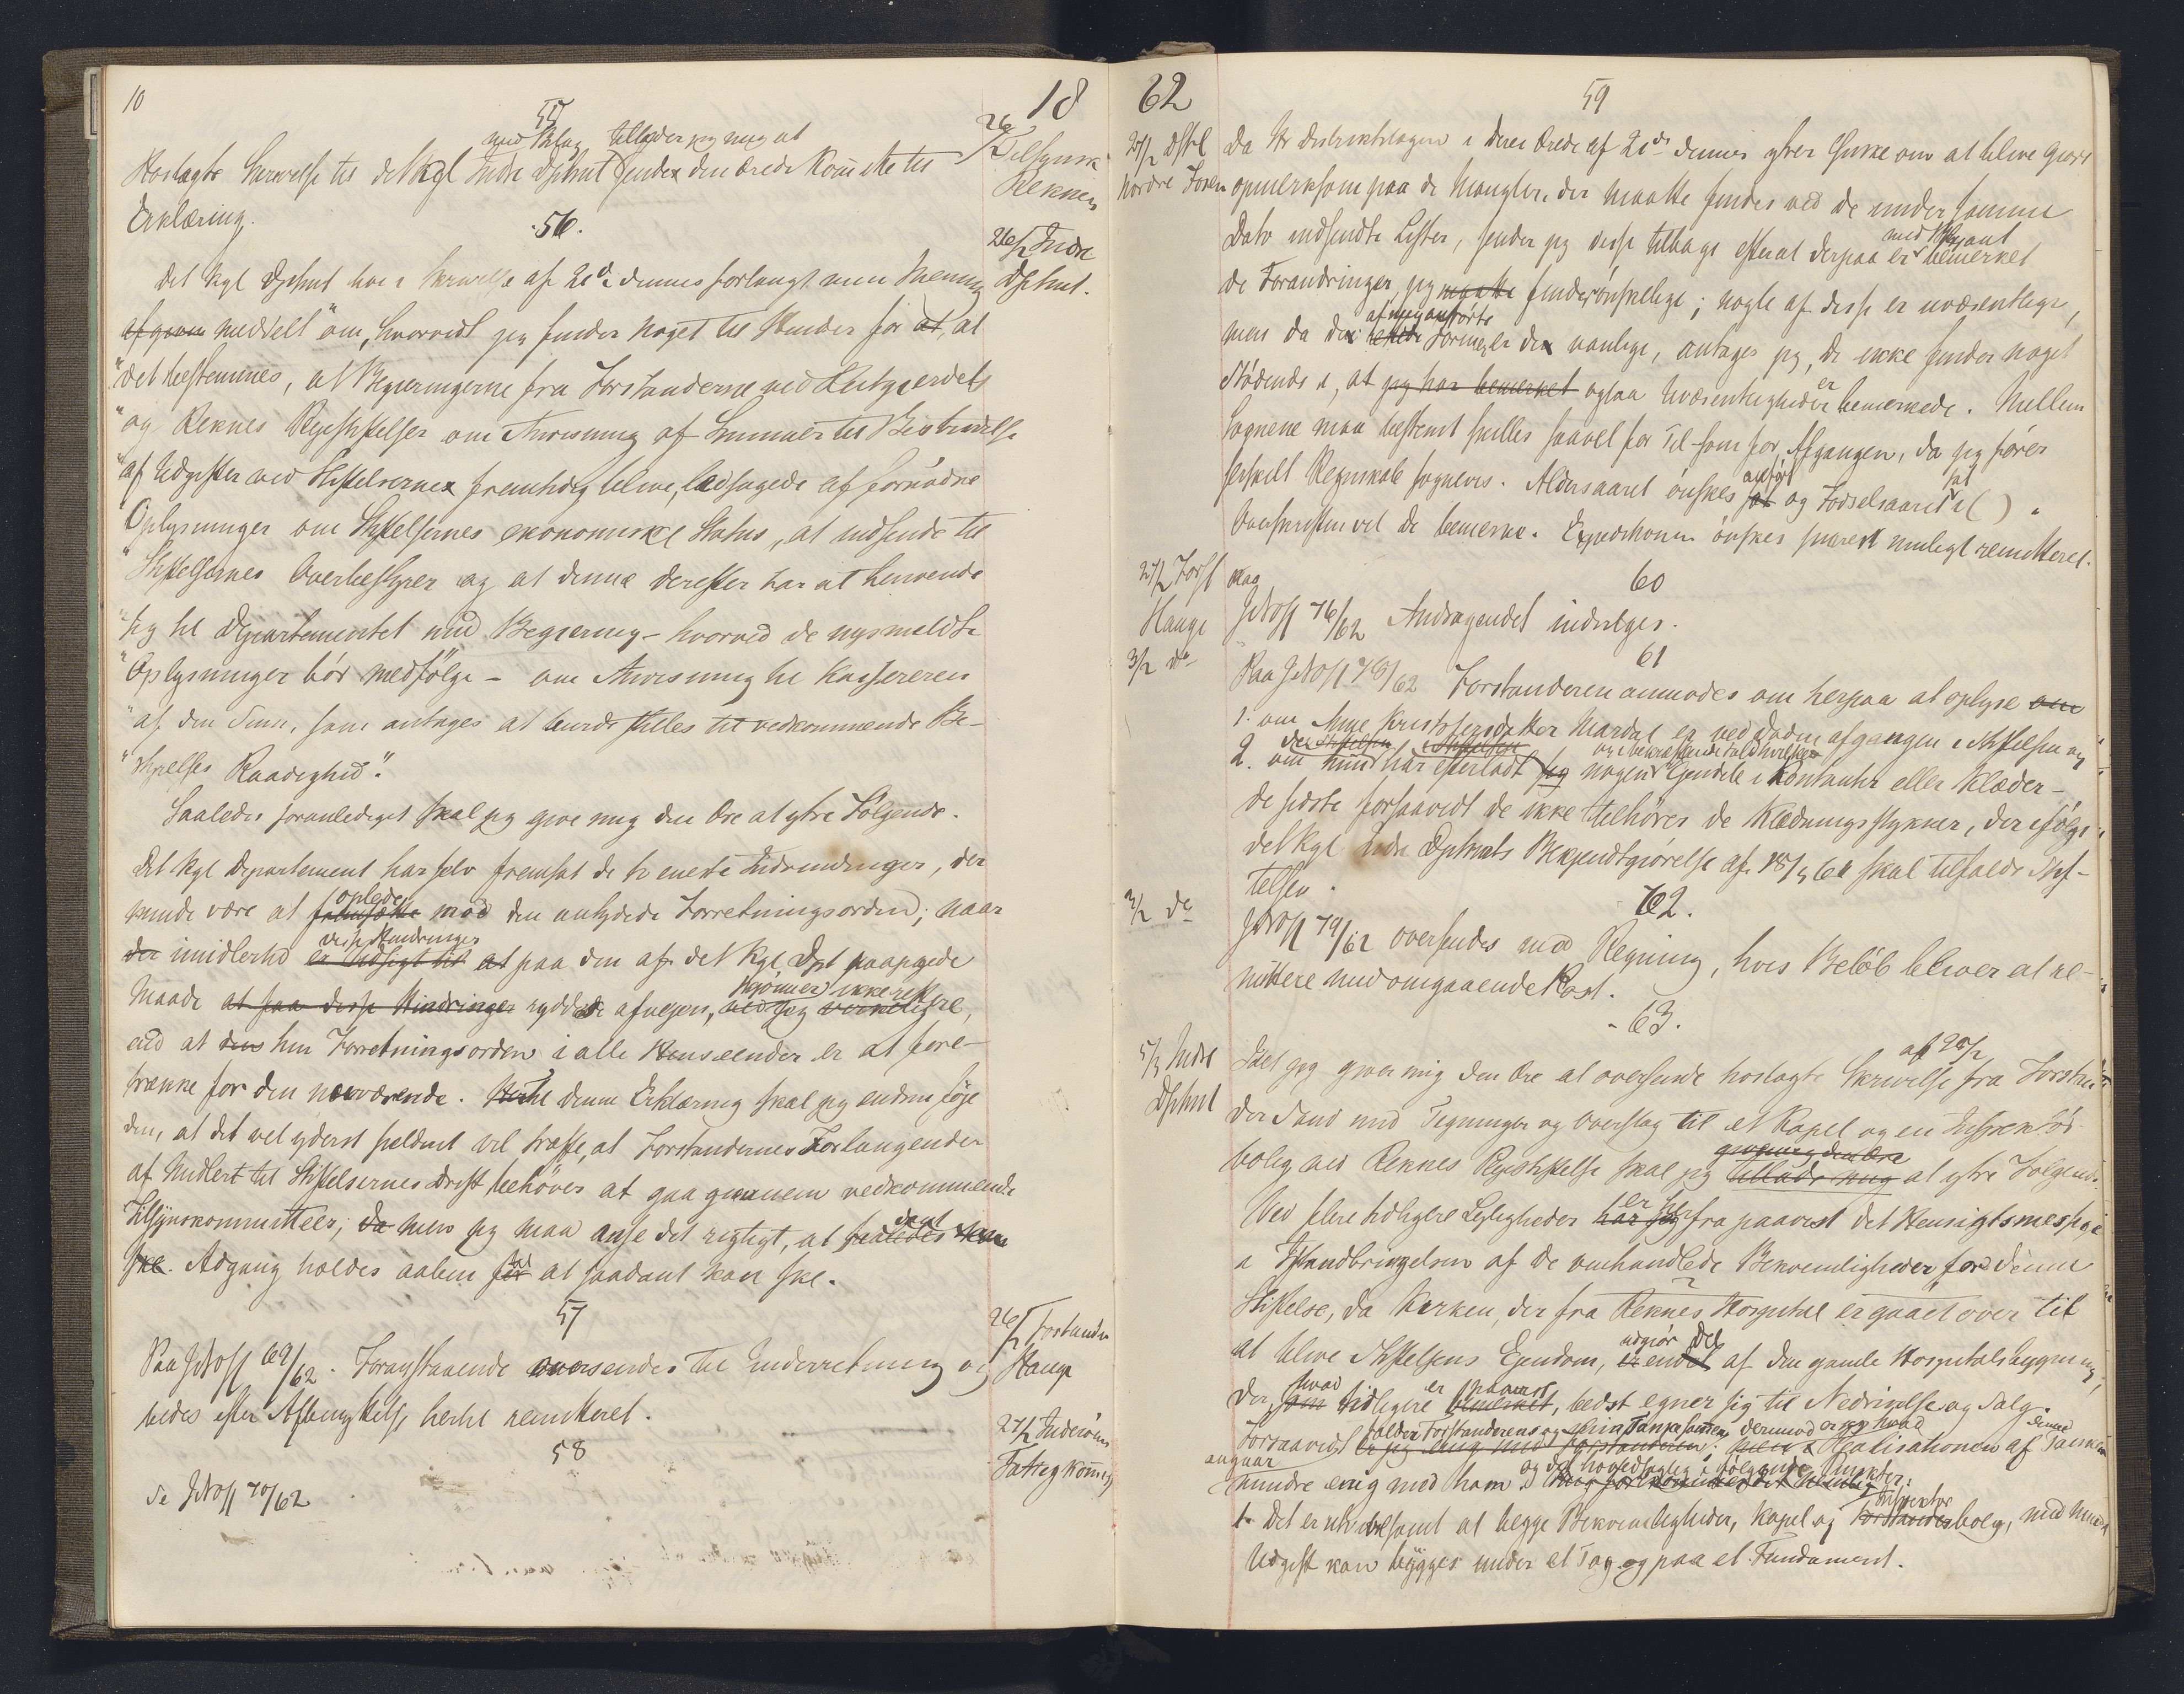 10
18
55
med Bilag tillader jeg mig at
Hoslagte Skrivelse til det Kgl Indre Dptmt sender den ærede Komitte til
Erklæring.
26/2 Tilsynsk
Reknes
56.
26/2 Indre
Dptmt.
Det Kgl Dptmt har i Skrivelse af 21de dennes forlangt min Mening
afgiven meddelt "om, hvorvidt jeg finder Noget til Hinder for at, at
"det bestemmes, at Begjæringerne fra Forstanderne ved Lungegaardets
"og Reknes Plejestiftelser om Anvisning af Summer til Bestridelse
"af Udgifter ved Stiftelserne fremtidig blive, ledsagede af fornødne
"Oplysninger om Stiftelsernes økonomiske Status, at indsende til
"Stiftelsernes Overbestyrer og at denne derefter har at henvende
"sig til Departementet med Begjæring – hvorved de nysmeldte
"Oplysninger bør medfølge – om Anvisning til Kassereren
"af den Sum, som antages at burde stilles til vedkommende Be-
"styrelses Raadighed".
Saaledes foranlediget skal jeg give mig den Ære at ytre Følgende.
Det Kgl Departement har selv fremsat de to eneste Indvendinger, der
kunde være at fremsætte mod den antydede Forretningsorden; naar
der imidlertid disse Hindringer er Udsigt til at paa den af det Kgl Dpt paapegede
Maade at faa disse Hindringer ryddede afvejen, skjønner ikke rettere,
end at den hin Forretningsorden i alle Henseender er at fore-
trække for den nærværende. Hertil denne Erklæring skal jeg endnu føje
den, at det vel yderst sjeldent vil træffe, at Forstandernes Forlangender
af Midler til Stiftelsernes Drift behøver at gaa gjennem vedkommende
Tilsynskommitteer, da men jeg maa anse det rigtigt, at
ske. Adgang holdes aaben for at saadant kan ske.
57
26/2 Forstander
Hauge
Paa JNo 69/62. Foranstaaende oversendes til Underretning og
bedes efter Afbenyttelse hertil remitteret.
58
27/2 Inderøens
Fattigkomm
Se JNo 70/62
62
59
27/2 Dstrl
Nordre Foser
Da Hr Distriktslægen i Deres Ærede af 21de dennes ytrer Ønske om at blive gjort
opmærksom paa de Mangler, der maatte findes ved de under samme
Dato indsendte Lister, sender jeg disse tilbage efterat derpaa er med Blyant bemærket
de Forandringer, jeg maatte finder ønskelige; nogle af disse er uvæsentlige,
men da de af mig anførte Former er de vanlige, antager jeg, De ikke finder noget
Stødende i, at jeg har bemærket ogsaa Uvæsentligheder er bemærkede. Mellem
Sognene maa bestemt skilles saavel for Til- som for Afgangen, da jeg fører
særskilt Regnskab sognevis. Aldersaaret ønskes anført sat og Fødselsaaret sat i ( ).
Overskriften vil De bemærke. Expeditionen ønskes snarest muligt remitteret.
60
27/2 Forst
Hauge
Paa
JNo 76/62 Andragendet indvilges.
61
3/2 do
Paa JNo 78/62 Forstanderen anmodes om herpaa at oplyse om
1. om Anne Kristofersdatter Mardal er ved Døden afgangen i Stiftelsen og
2. om hun har efterladt sig nogen Ejendele i Kontanter eller Klæder –
de sidste forsaavidt de ikke tilhører de Klædningsstykker, der ifølge
det Kgl Indre Dptmts Bekjendtgjørelse af 18/5 61 skal tilfalde Stif-
telsen.
62.
3/2 do
JNo 79/62 oversendes med Regning, hvis Beløb bliver at re-
mittere med omgaaende Post.
63.
5/3 Indre
Dptmt
Idet jeg giver mig den Ære at oversende hoslagte Skrivelse af 28/2 fra Forstan
der Sand med Tegninger og Overslag til et Kapel og en Inspektør-
bolig ved Reknes Plejestiftelse skal jeg give mig den Ære tillade mig at ytre Følgende.
Ved flere tidligere Lejligheder er har jeg herfra paavist det Hensigtsmessige
i Istandbringelsen af de omhandlede Bekvemligheder for denne
Stiftelse, da Kirken, der fra Reknes Hospital er gaaet over til
at blive Stiftelsens Ejendom, udgjør en Del af den gamle Hospitalsbygning,
der, hvad som tidligere er paavist bemærket, bedst egner sig til Nedrivelse og Salg.
Forsaavidt falder Forstanderens og min Tanke sammen, derimod er jeg hvad Realisationen af denne Tanke
angaar
mindre enig med ham og det hovedsagelig i følgende Punkter:
1. Det er utvivlsomt at begge Bekvemligheder, Kapel og Inspektør Forstanderbolig, med mindst
Udgift kan bygges under et Tag og paa et Fundament.